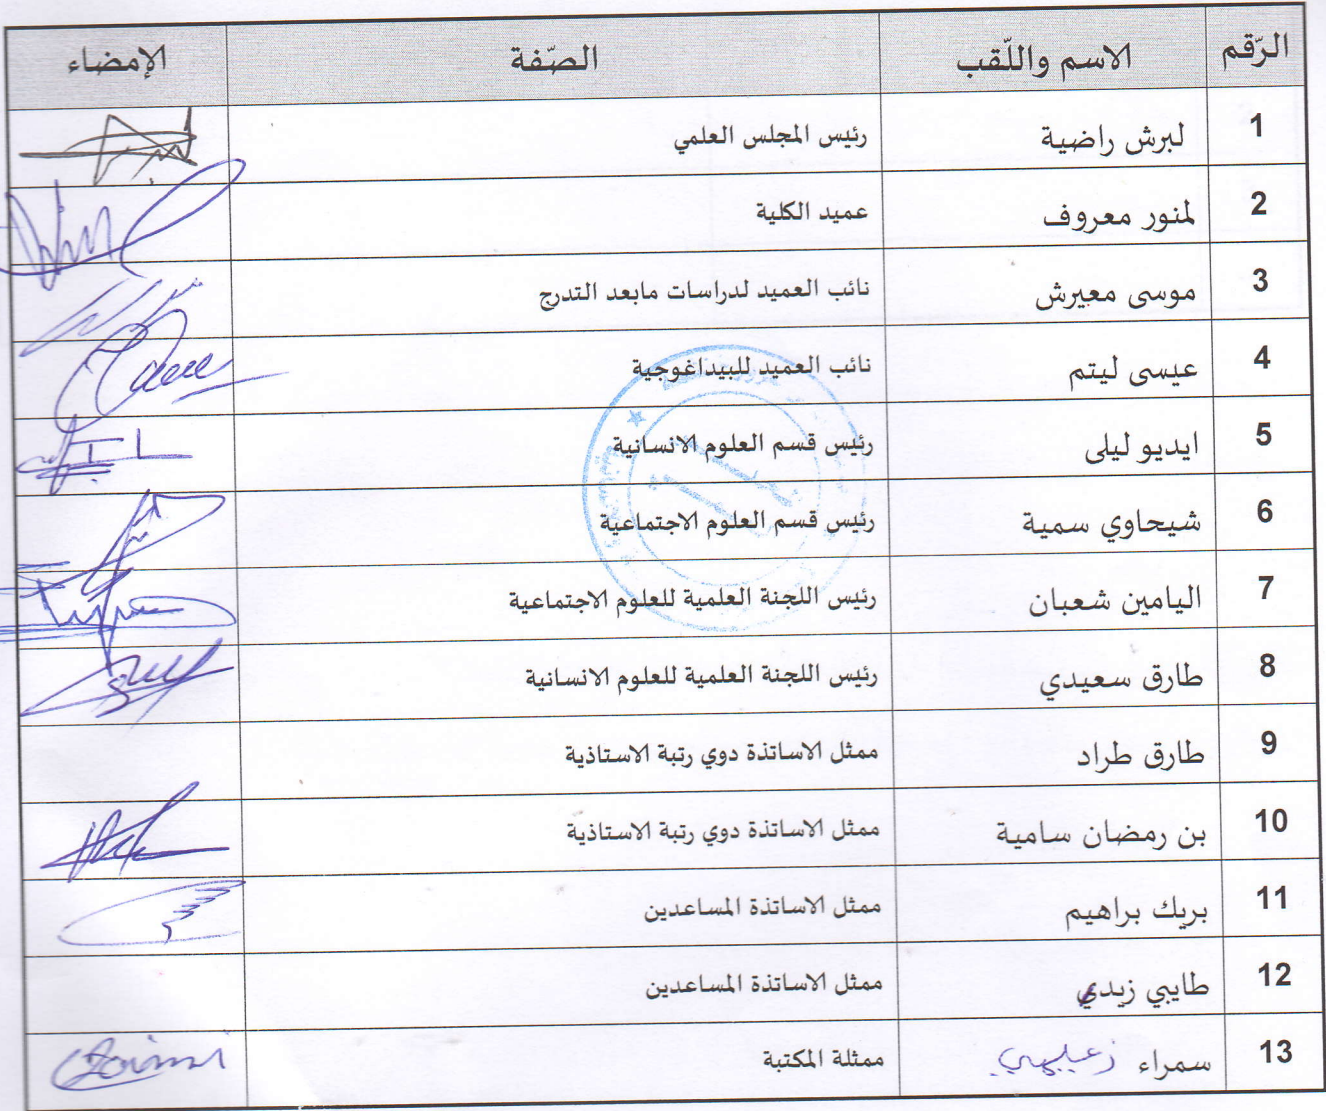 الرّقم الاسم واللّقب الصّفة الإمضاء
1 لبرش راضية رئيس المجلس العلمي
2 لمنور معروف عميد الكلية
3 موسى معيرش نائب العميد لدراسات مابعد التدرج
4 عيسى ليتم نائب العميد للبيداغوجية
5 ايديو ليلى رئيس قسم العلوم الانسانية
6 شيحاوي سمية رئيس قسم العلوم الاجتماعية
7 اليامين شعبان رئيس اللجنة العلمية للعلوم الاجتماعية
8 طارق سعيدي رئيس اللجنة العلمية للعلوم الانسانية
9 طارق طراد ممثل الاساتذة دوي رتبة الاستاذية
10 بن رمضان سامية ممثل الاساتذة دوي رتبة الاستاذية
11 بريك براهيم ممثل الاساتذة المساعدين
12 طايبي زيدي ممثل الاساتذة المساعدين
13 سمراء ممثلة المكتبة